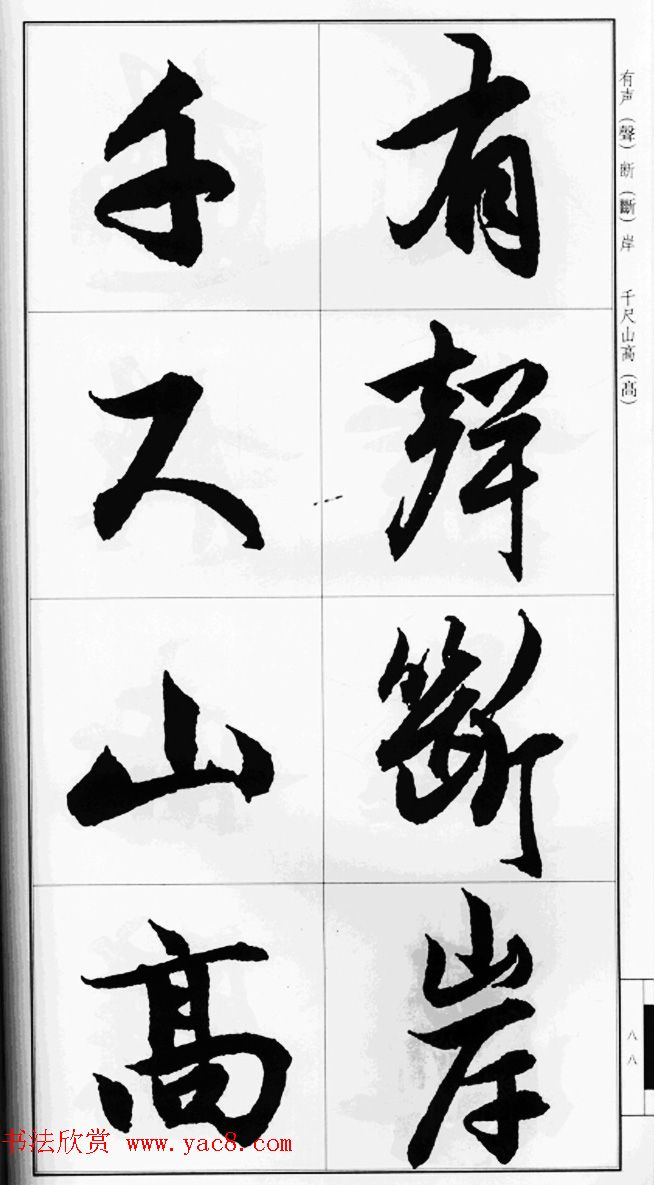 有聲斷岸
千尺山高
有声（聲）断（斷）岸　千尺山高（髙）
八八
书法欣赏 www.yac8.com